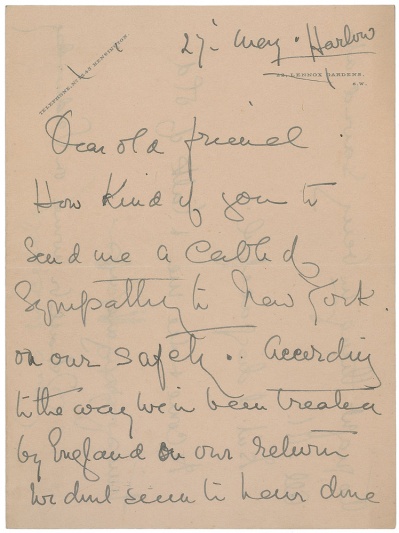 27th May. Harlow
TELEPHONE, KENSINGTON.
LENNOX GARDENS,
S.W.
Dear old friend.
How kind of you to
send me a cable of
Sympathy to New York.
on our safety .. According
to the way we've been treated
by England on our return
we dont seem to have done